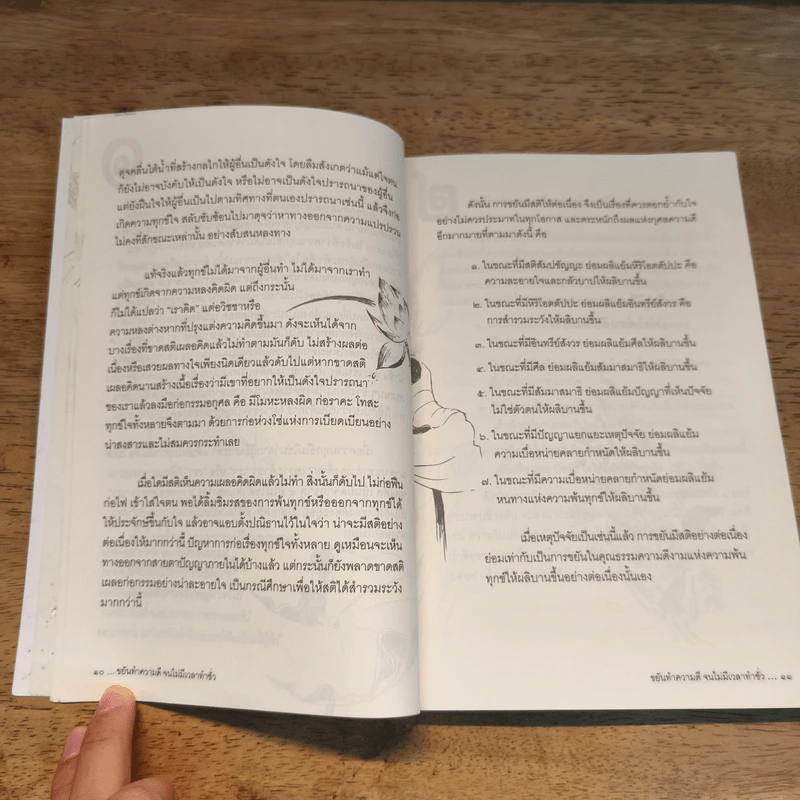 ดุจคลื่นใต้น้ำที่สร้างกลไกให้ผู้อื่นเป็นดังใจ โดยลืมสังเกตว่าแม้แต่ใจตน
ก็ยังไม่อาจบังคับให้เป็นดังใจ หรือไม่อาจเป็นดังใจปรารถนาของผู้อื่น
แต่ยังฝืนใจให้ผู้อื่นเป็นไปตามทิศทางที่ตนเองปรารถนาเช่นนี้ แล้วจึงก่อ
เกิดความทุกข์ใจ สลับซับซ้อนไปมาดุจว่าหาทางออกจากความแปรปรวน
ไม่คงที่ลักษณะเหล่านั้น อย่างสับสนหลงทาง
แท้จริงแล้วทุกข์ไม่ได้มาจากผู้อื่นทำ ไม่ได้มาจากเราทำ
แต่ทุกข์เกิดจากความหลงคิดผิด แต่ถึงกระนั้น
ก็ไม่ได้แปลว่า "เราคิด" แต่อวิชชาหรือ
ความหลงต่างหากที่ปรุงแต่งความคิดขึ้นมา ดังจะเห็นได้จาก
บางเรื่องที่ขาดสติเผลอคิดแล้วไม่ทำตามมันก็ดับ ไม่สร้างผลต่อ
เนื่องหรือเสวยผลทางใจเพียงนิดเดียวแล้วดับไปแต่หากขาดสติ
เผลอคิดนานสร้างเนื้อเรื่องว่ามีเขาที่อยากให้เป็นดังใจปรารถนา
ของเราแล้วลงมือก่อกรรมอกุศล คือ มีโมหะหลงผิด ก่อราคะ โทสะ
ทุกข์ใจทั้งหลายจึงตามมา ด้วยการก่อห่วงโซ่แห่งการเบียดเบียนอย่าง
น่าสงสารและไม่สมควรกระทำเลย
เมื่อใดมีสติเห็นความเผลอคิดผิดแล้วไม่ทำ สิ่งนั้นก็ดับไป ไม่ก่อฟืน
ก่อไฟ เข้าใส่ใจตน พอได้ลิ้มชิมรสของการพ้นทุกข์หรือออกจากทุกข์ได้
ให้ประจักษ์ขึ้นกับใจ แล้วอาจแอบตั้งปณิธานไว้ในใจว่า น่าจะมีสติอย่าง
ต่อเนื่องให้มากกว่านี้ ปัญหาการก่อเรื่องทุกข์ใจทั้งหลาย ดูเหมือนจะเห็น
ทางออกจากสายตาปัญญาภายในได้บ้างแล้ว แต่กระนั้นก็ยังพลาดขาดสติ
เผลอก่อกรรมอย่างน่าละอายใจ เป็นกรณีศึกษาเพื่อให้สติได้สำรวมระวัง
มากกว่านี้
๑๐ ... ขยันทำความดี จนไม่มีเวลาทำชั่ว
ดังนั้น การขยันมีสติให้ต่อเนื่อง จึงเป็นเรื่องที่ควรตอกย้ำกับใจ
อย่างไม่ควรประมาทในทุกโอกาส และตระหนักถึงผลแห่งกุศลความดี
อีกมากมายที่ตามมาดังนี้ คือ
๑. ในขณะที่มีสติสัมปชัญญะ ย่อมผลิแย้มหิริโอตตัปปะ คือ
ความละอายใจและกลัวบาปให้ผลิบานขึ้น
๒. ในขณะที่มีหิริโอตตัปปะ ย่อมผลิแย้มอินทรีย์สังวร คือ
การสำรวมระวังให้ผลิบานขึ้น
๓. ในขณะที่มีอินทรีย์สังวร ย่อมผลิแย้มศีลให้ผลิบานขึ้น
๔. ในขณะที่มีศีล ย่อมผลิแย้มสัมมาสมาธิให้ผลิบานขึ้น
๕. ในขณะที่มีสัมมาสมาธิ ย่อมผลิแย้มปัญญาที่เห็นปัจจัย
ไม่ใช่ตัวตนให้ผลิบานขึ้น
๖. ในขณะที่มีปัญญาแยกแยะเหตุปัจจัย ย่อมผลิแย้ม
ความเบื่อหน่ายคลายกำหนัดให้ผลิบานขึ้น
๗. ในขณะที่มีความเบื่อหน่ายคลายกำหนัดย่อมผลิแย้ม
หนทางแห่งความพ้นทุกข์ให้ผลิบานขึ้น
เมื่อเหตุปัจจัยเป็นเช่นนี้แล้ว การขยันมีสติอย่างต่อเนื่อง
ย่อมเท่ากับเป็นการขยันในคุณธรรมความดีงามแห่งความพ้น
ทุกข์ให้ผลิบานขึ้นอย่างต่อเนื่องนั้นเอง
ขยันทำความดี จนไม่มีเวลาทำชั่ว ... ๑๑